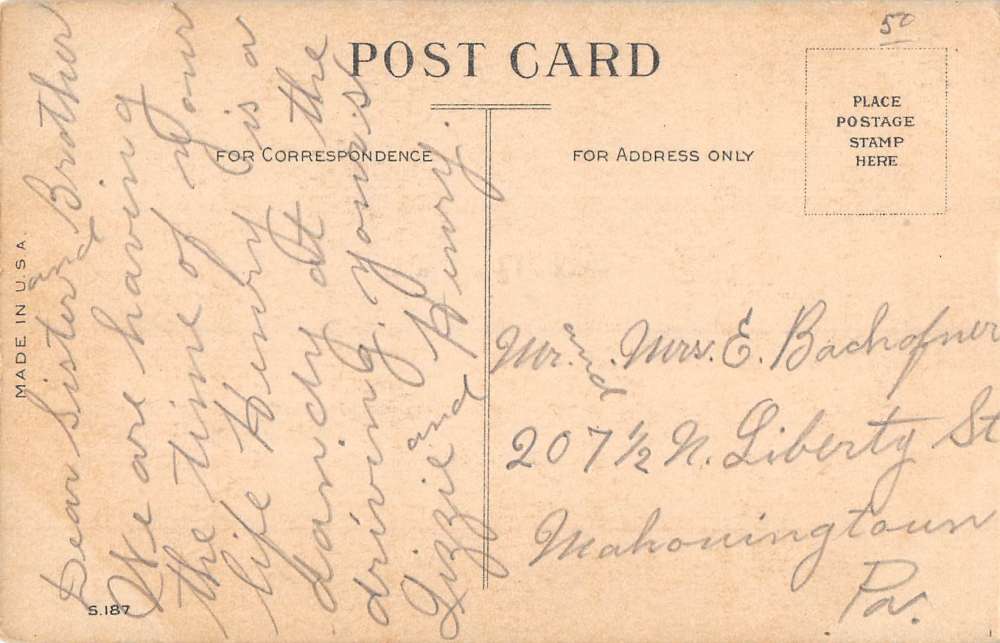 50
POST CARD
PLACE
POSTAGE
STAMP
HERE
FOR CORRESPONDENCE
FOR ADDRESS ONLY
MADE IN U.S.A.
S.187
Dear Sister and Brother
We are having
the time of your
life Henry is a
dandy at the
driving, yours
Lizzie and Henry.
Mr. and Mrs. E. Bachofner
207 1/2 N. Liberty St
Mahoningtown
Pa.